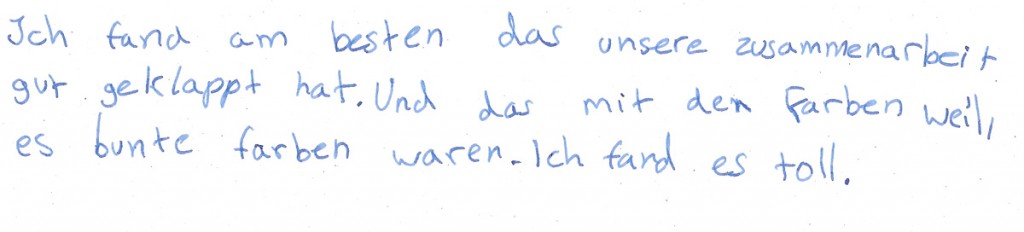 Ich fand am besten das unsere zusammenarbeit
gut geklappt hat. Und das mit den Farben weil,
es bunte farben waren. Ich fand es toll.